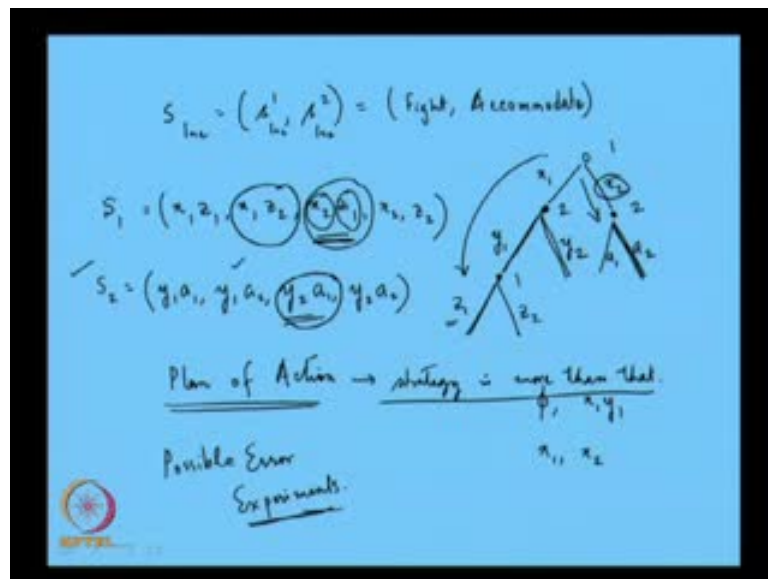 S_Inc = (s^1_Inc, s^2_Inc) = (Fight, Accommodate)
S_1 = (x_1 z_1, x_1 z_2, x_2 z_1, x_2, z_2)
S_2 = (y_1 a_1, y_1 a_2, y_2 a_1, y_2 a_2)
1
x_1 x_2
2 2
y_1 y_2 a_1 a_2
1
z_1 z_2
Plan of Action → strategy is more than that.
φ, x_1 y_1
x_1, x_2
Possible Error
Experiments.
NPTEL